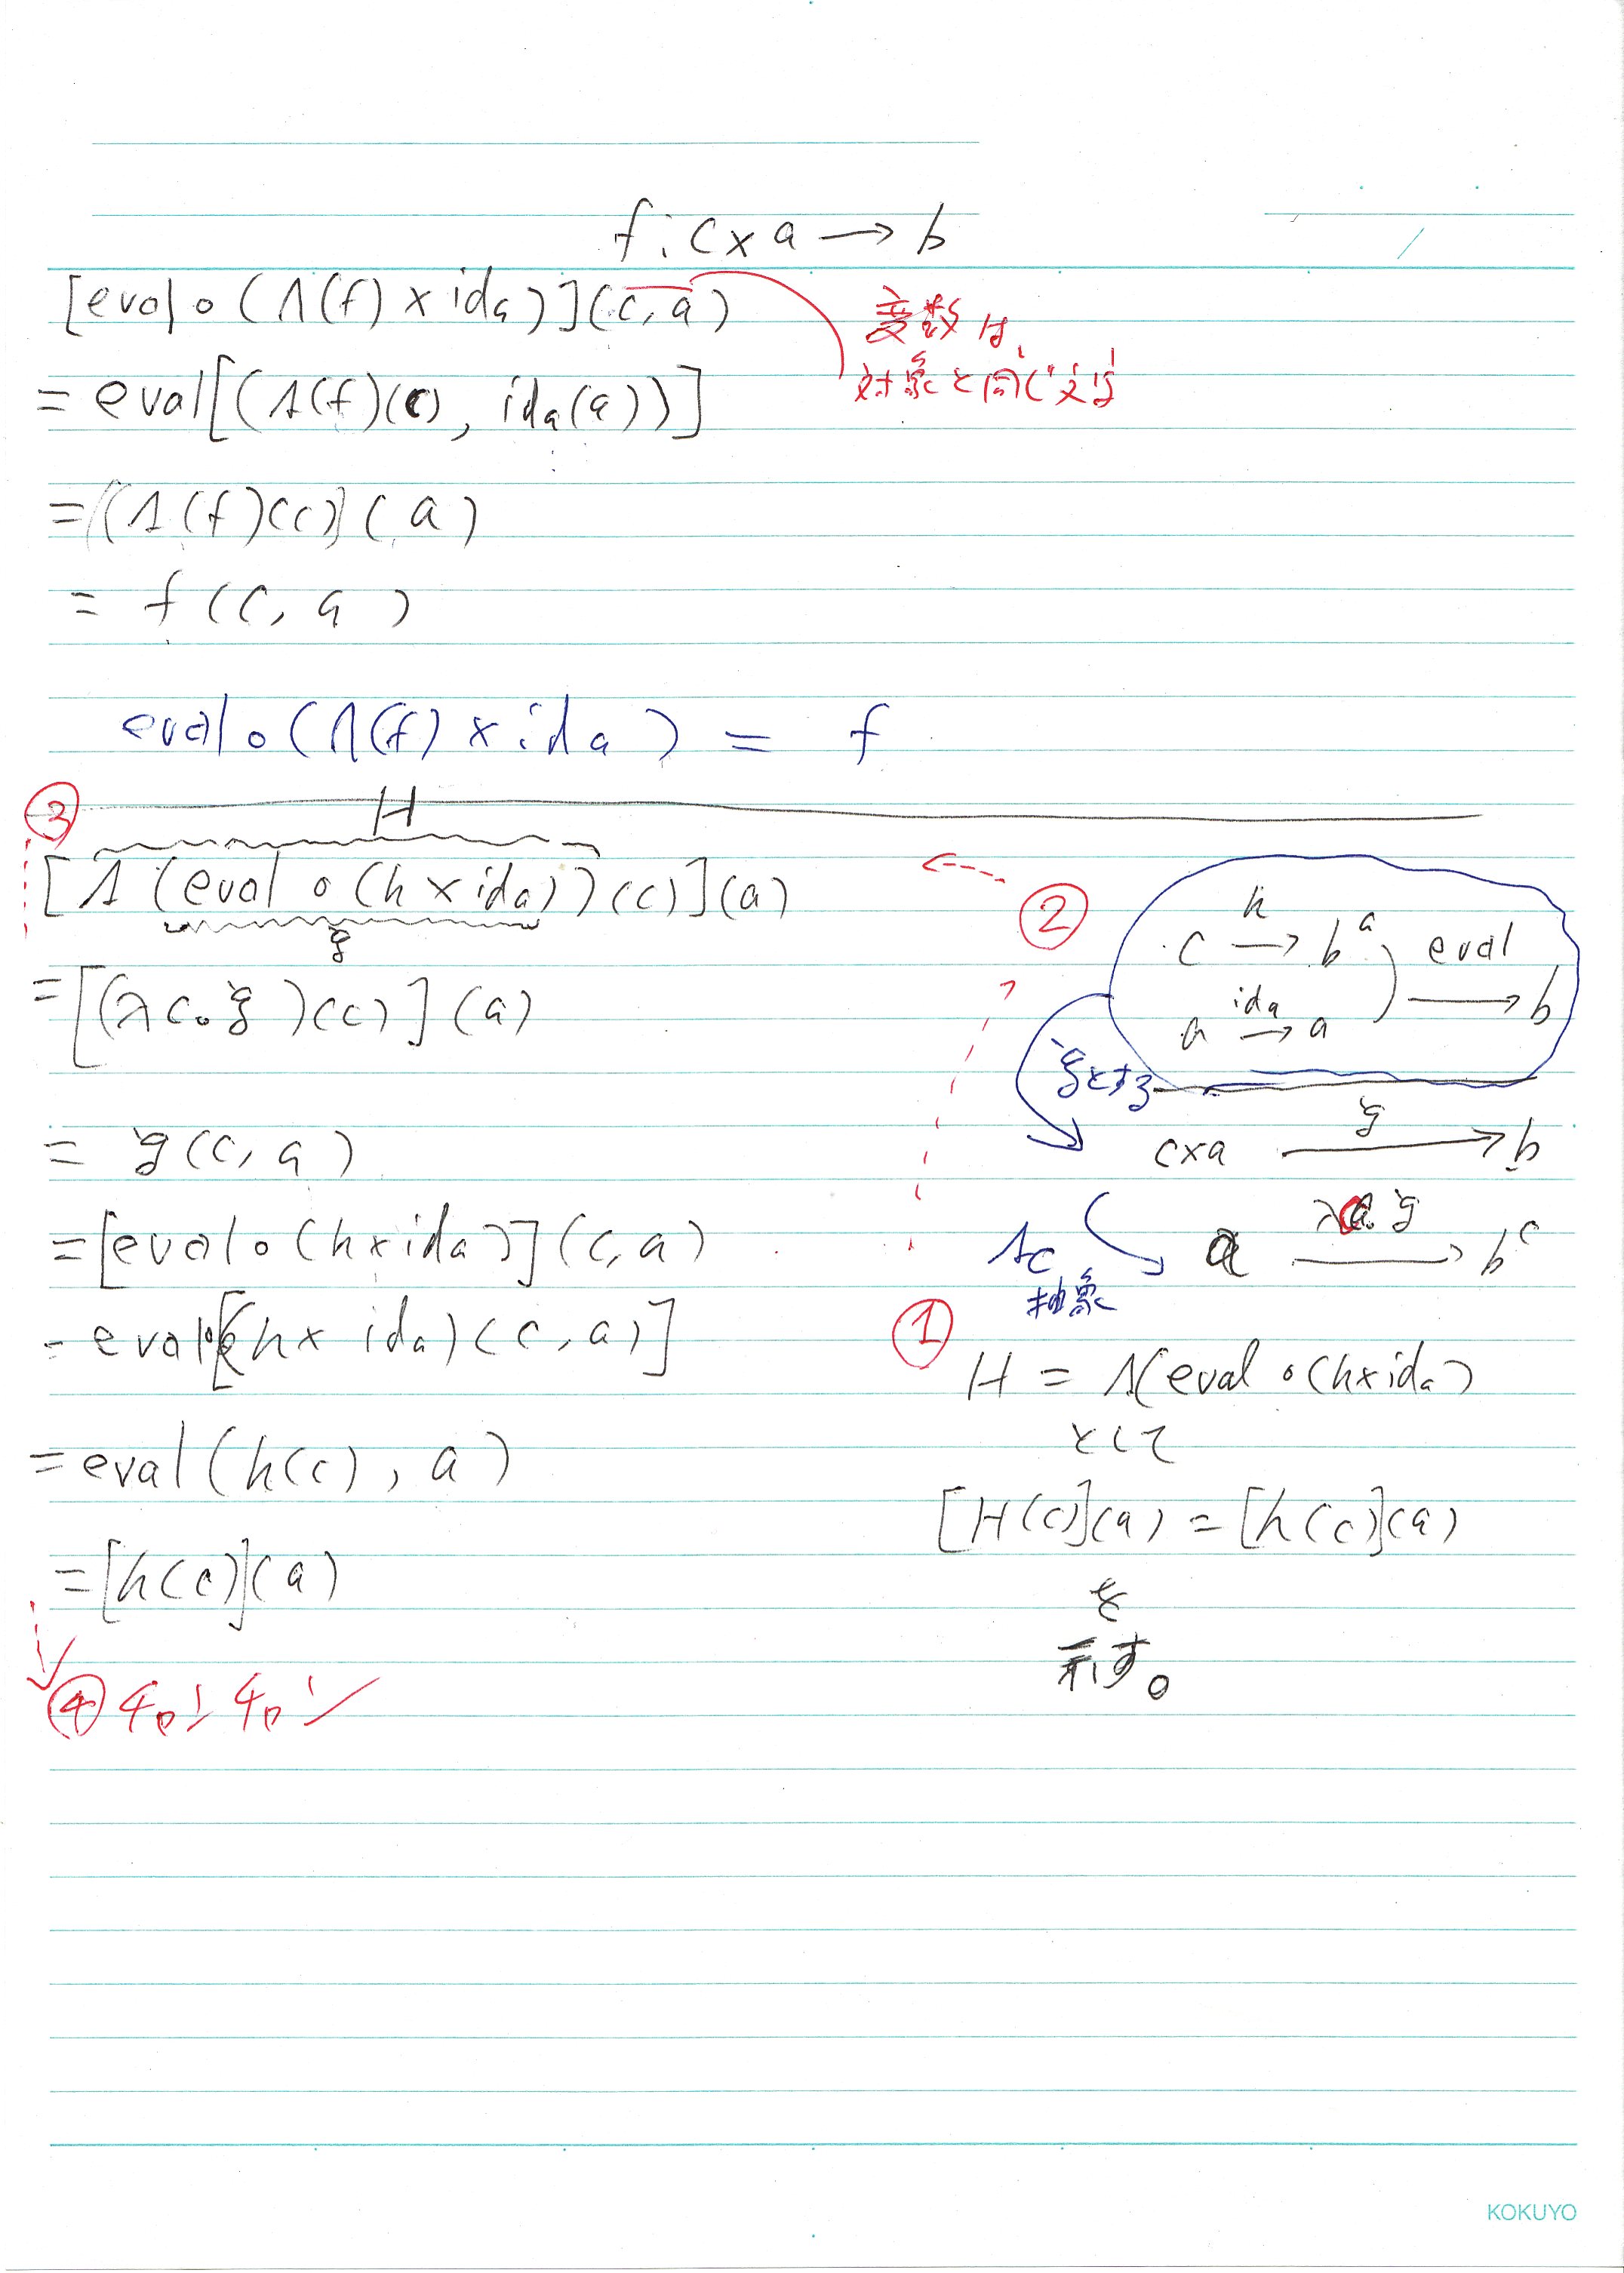 f : c × a → b
[eval ∘ (Λ(f) × id_a)](c, a)
変数は、
対象と同じ文字
= eval[(Λ(f)(c), id_a(a))]
= [Λ(f)(c)](a)
= f(c, a)
eval ∘ (Λ(f) × id_a) = f
③
H
[Λ(eval ∘ (h × id_a))(c)](a)
g
= [(λc.g)(c)](a)
= g(c, a)
= [eval ∘ (h × id_a)](c, a)
= eval[(h × id_a)(c, a)]
= eval(h(c), a)
= [h(c)](a)
④
②
h
c → b^a
eval
id_a
→ b
a → a
gとする
g
c×a → b
λc.g
Λc
a → b^c
抽象
①
H = Λ(eval ∘ (h×id_a)
として
[H(c)](a) = [h(c)](a)
を
示す。
KOKUYO